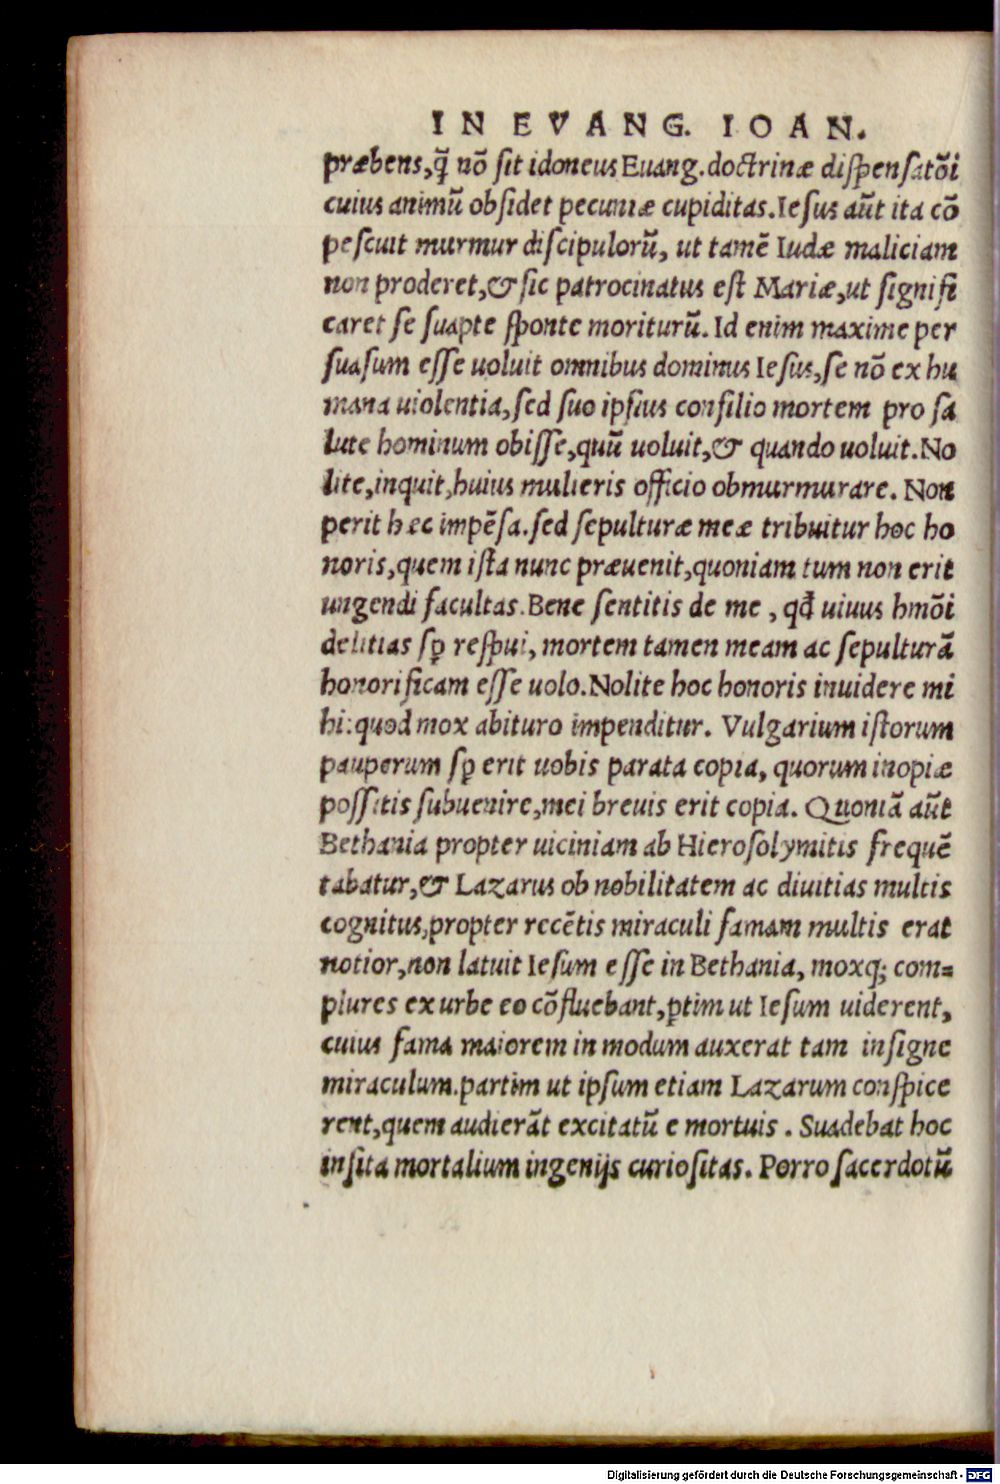 IN EVANG. IOAN.
præbens,q̃ nõ sit idoneus Euang.doctrinæ dispensatõi
cuius animũ obsidet pecuniæ cupiditas.Iesus aũt ita cõ
pescuit murmur discipulorũ, ut tamẽ Iudæ maliciam
non proderet,& sic patrocinatus est Mariæ,ut signifi
caret se suapte sponte moriturũ. Id enim maxime per
suasum esse uoluit omnibus dominus Iesus,se nõ ex hu
mana uiolentia,sed suo ipsius consilio mortem pro sa
lute hominum obisse,quũ uoluit,& quando uoluit.No
lite,inquit,huius mulieris officio obmurmurare. Non
perit hæc impẽsa.sed sepulturæ meæ tribuitur hoc ho
noris,quem ista nunc præuenit,quoniam tum non erit
ungendi facultas.Bene sentitis de me , qđ uiuus hmõi
delitias sꝑ respui, mortem tamen meam ac sepulturã
honorificam esse uolo.Nolite hoc honoris inuidere mi
hi:quod mox abituro impenditur. Vulgarium istorum
pauperum sꝑ erit uobis parata copia, quorum inopiæ
possitis subuenire,mei breuis erit copia. Quoniã aũt
Bethania propter uiciniam ab Hierosolymitis frequẽ
tabatur,& Lazarus ob nobilitatem ac diuitias multis
cognitus,propter recẽtis miraculi famam multis erat
notior,non latuit Iesum esse in Bethania, moxq; com=
plures ex urbe eo cõfluebant,ꝑtim ut Iesum uiderent,
cuius fama maiorem in modum auxerat tam insigne
miraculum.partim ut ipsum etiam Lazarum conspice
rent,quem audierãt excitatũ e mortuis . Suadebat hoc
insita mortalium ingenijs curiositas. Porro sacerdotũ
Digitalisierung gefördert durch die Deutsche Forschungsgemeinschaft - DFG